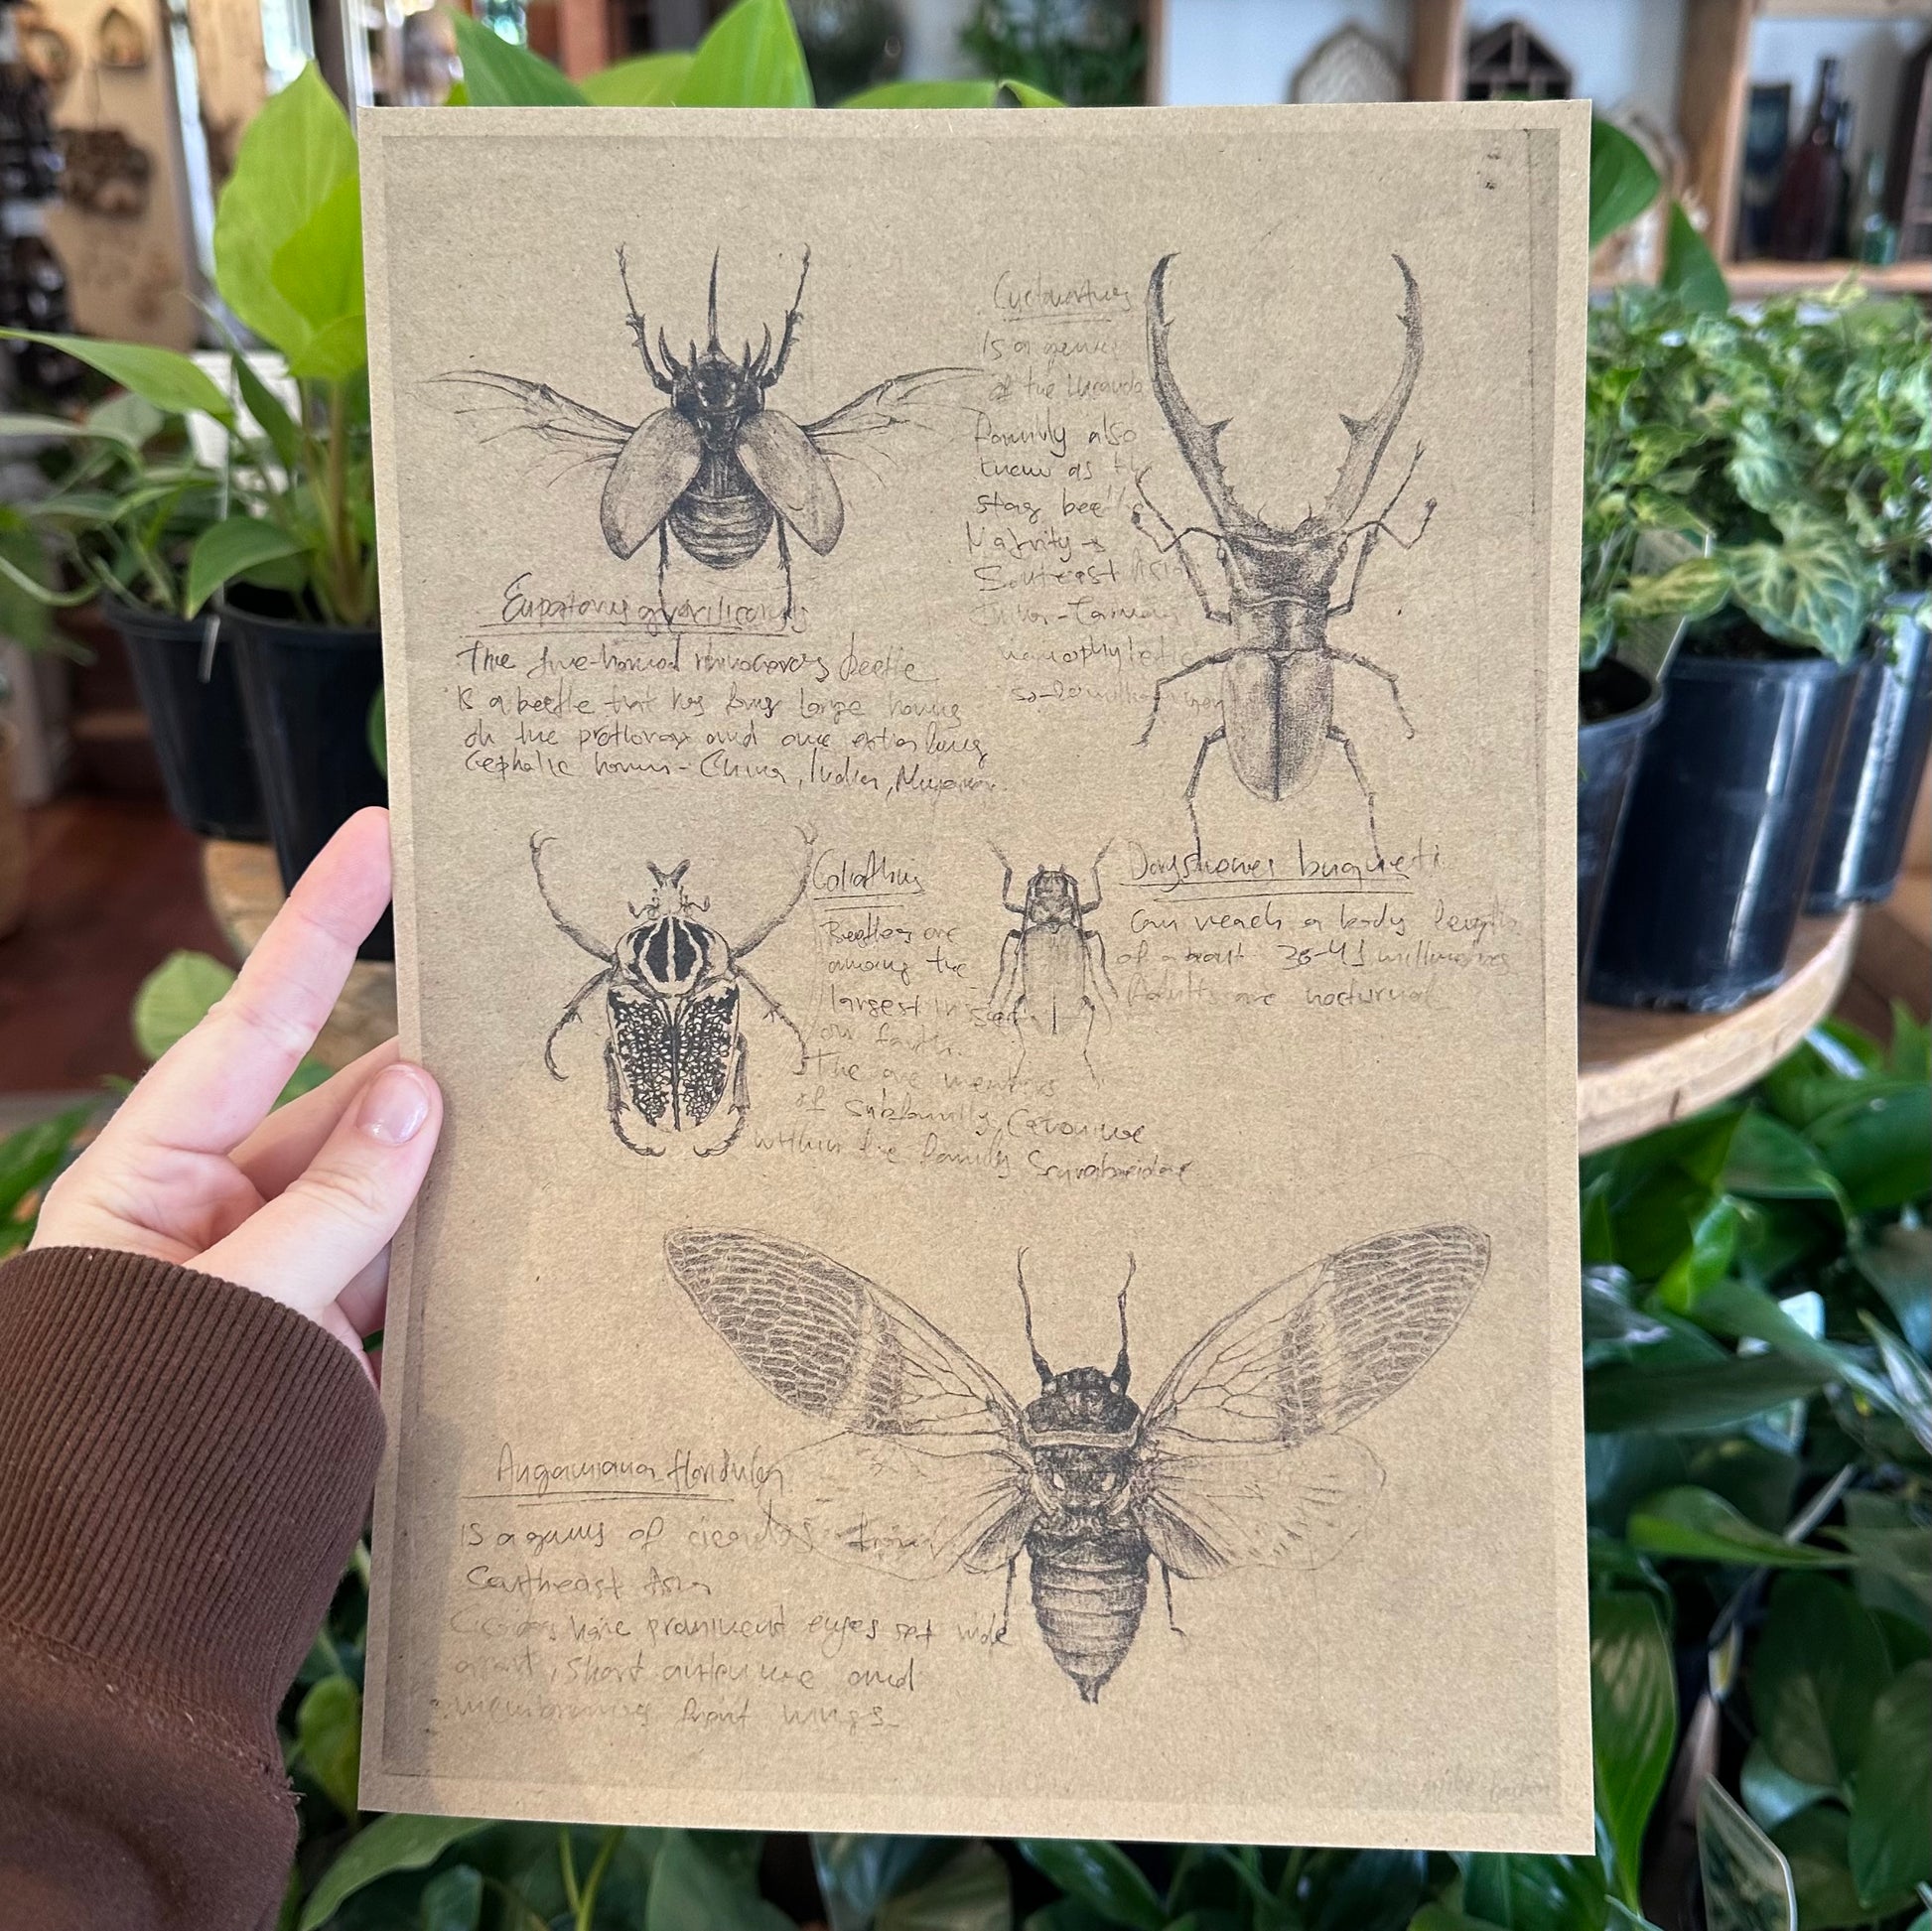 Eupatorus gracilicornis
The five-horned rhinoceros beetle
is a beetle that has four large horns
on the prothorax and one extra long
Cephalic horn - China, India, Myanmar
is a genus
of the
family also
known as the
stag beetle
Majority
Southeast Asia
Goliathus
Beetles are
among the
largest insect
on Earth.
The are members
of subfamily, Cetoniinae
within the family Scarabaeidae
Dorysthenes buqueti
Can reach a body length
of about 36-41 millimetres
Adults are nocturnal
Angamiana floridula
is a genus of cicadas from
Southeast Asia
Cicadas have prominent eyes set wide
apart, short antennae and
membranous front wings